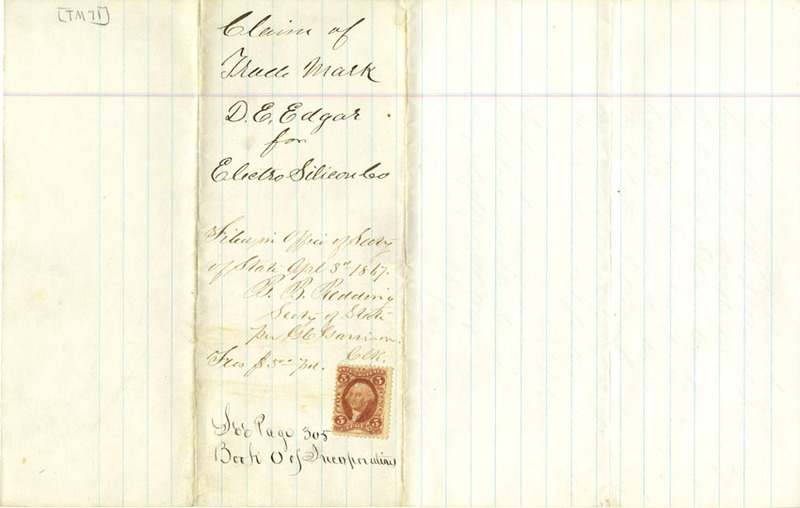 [TM 71]
Claim of
Trade Mark
D. E. Edgar
for
Electro Silicon Co
Filed in Office of Secty
of State Apl 3d 1867.
B. B. Redding
Secty of State
per Garrison.
Clk.
Fees $5.00 pd.
5 5
5 5
See Page 305
Book O of Incorporations